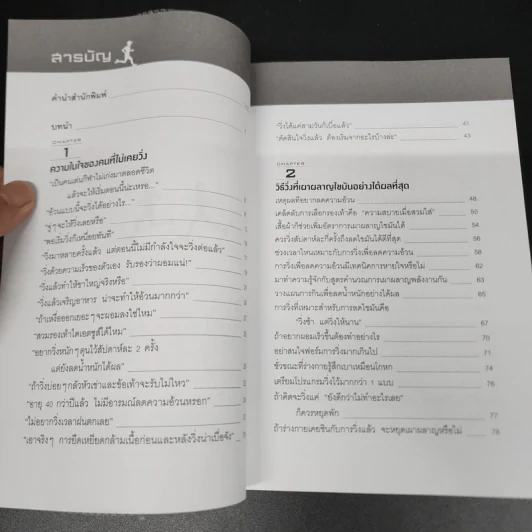 สารบัญ
คำนำสำนักพิมพ์
บทนำ
CHAPTER
1
ความในใจของคนที่ไม่เคยวิ่ง
"เป็นคนเล่นกีฬาไม่เก่งมาตลอดชีวิต
แล้วจะให้เริ่มตอนนี้น่ะเหรอ..."
"อ้วนแบบนี้จะวิ่งได้อย่างไร..."
"จู่ๆ จะให้วิ่งเลยหรือ"
"พอเริ่มวิ่งก็เหนื่อยทันที"
"วิ่งมาหลายครั้งแล้ว แต่ตอนนี้ไม่มีกำลังใจจะวิ่งต่อแล้ว"
"วิ่งด้วยความเร็วของตัวเอง รับรองว่าผอมแน่!"
"วิ่งแล้วทำให้ขาใหญ่จริงหรือ"
"วิ่งแล้วเจริญอาหาร น่าจะทำให้อ้วนมากกว่า"
"ถ้าเหงื่อออกเยอะๆ จะผอมลงใช่ไหม"
"สวมรองเท้าไดเอตชูส์ได้ไหม"
"อยากวิ่งหนักๆ ตุนไว้สัปดาห์ละ 2 ครั้ง
แต่ยังลดน้ำหนักได้ผล"
"ถ้าวิ่งบ่อยๆ กลัวหัวเข่าและข้อเท้าจะรับไม่ไหว"
"อายุ 40 กว่าปีแล้ว ไม่มีอารมณ์ลดความอ้วนหรอก"
"ไม่อยากวิ่งเวลาฝนตกเลย"
"เอาจริงๆ การยืดเหยียดกล้ามเนื้อก่อนและหลังวิ่งน่าเบื่อจัง"
"วิ่งได้แค่สามวันก็เบื่อแล้ว" 41
"ตัดสินใจวิ่งแล้ว ต้องเริ่มจากอะไรบ้างล่ะ" 43
CHAPTER
2
วิธีวิ่งที่เผาผลาญไขมันอย่างได้ผลที่สุด
เหตุผลที่อยากลดความอ้วน 48
เคล็ดลับการเลือกรองเท้าคือ "ความสบายเมื่อสวมใส่" 50
เสื้อผ้าก็ช่วยเพิ่มอัตราการเผาผลาญไขมันได้ 54
ควรวิ่งสัปดาห์ละกี่ครั้งถึงลดไขมันได้ดีที่สุด 56
ช่วงเวลาไหนเหมาะสำหรับการวิ่งเพื่อลดความอ้วน 58
การวิ่งเพื่อลดความอ้วนมีเทคนิคการหายใจหรือไม่ 62
มาทำความรู้จักกับสูตรคำนวณการเผาผลาญพลังงานกัน 63
วางแผนการกินเพื่อลดน้ำหนักอย่างได้ผล 65
การวิ่งที่เหมาะสำหรับการลดไขมันคือ
"วิ่งช้า แต่วิ่งให้นาน" 67
ถ้าอยากผอมเร็วขึ้นต้องทำอย่างไร 70
อย่าสนใจฟอร์มการวิ่งมากเกินไป 71
ชั่วขณะที่ร่างกายรู้สึกเบาเหมือนโกหก 74
เตรียมโปรแกรมวิ่งไว้มากกว่า 1 แบบ 76
ถ้าคิดจะวิ่งแค่ "ยังดีกว่าไม่ทำอะไรเลย"
ก็ควรหยุดพัก 77
ถ้าร่างกายเคยชินกับการวิ่งแล้ว จะหยุดเผาผลาญหรือไม่ 78